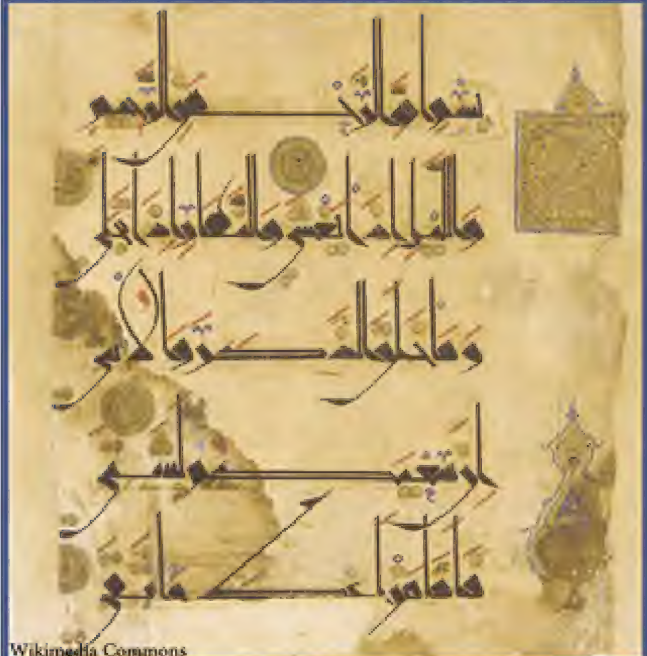 بسم الله الرحمن الرحيم
والليل اذا يغشى والنهار اذا تجلى
وما خلق الذكر والانثى
ان سعيكم لشتى
فاما من اعطى واتقى
Wikimedia Commons